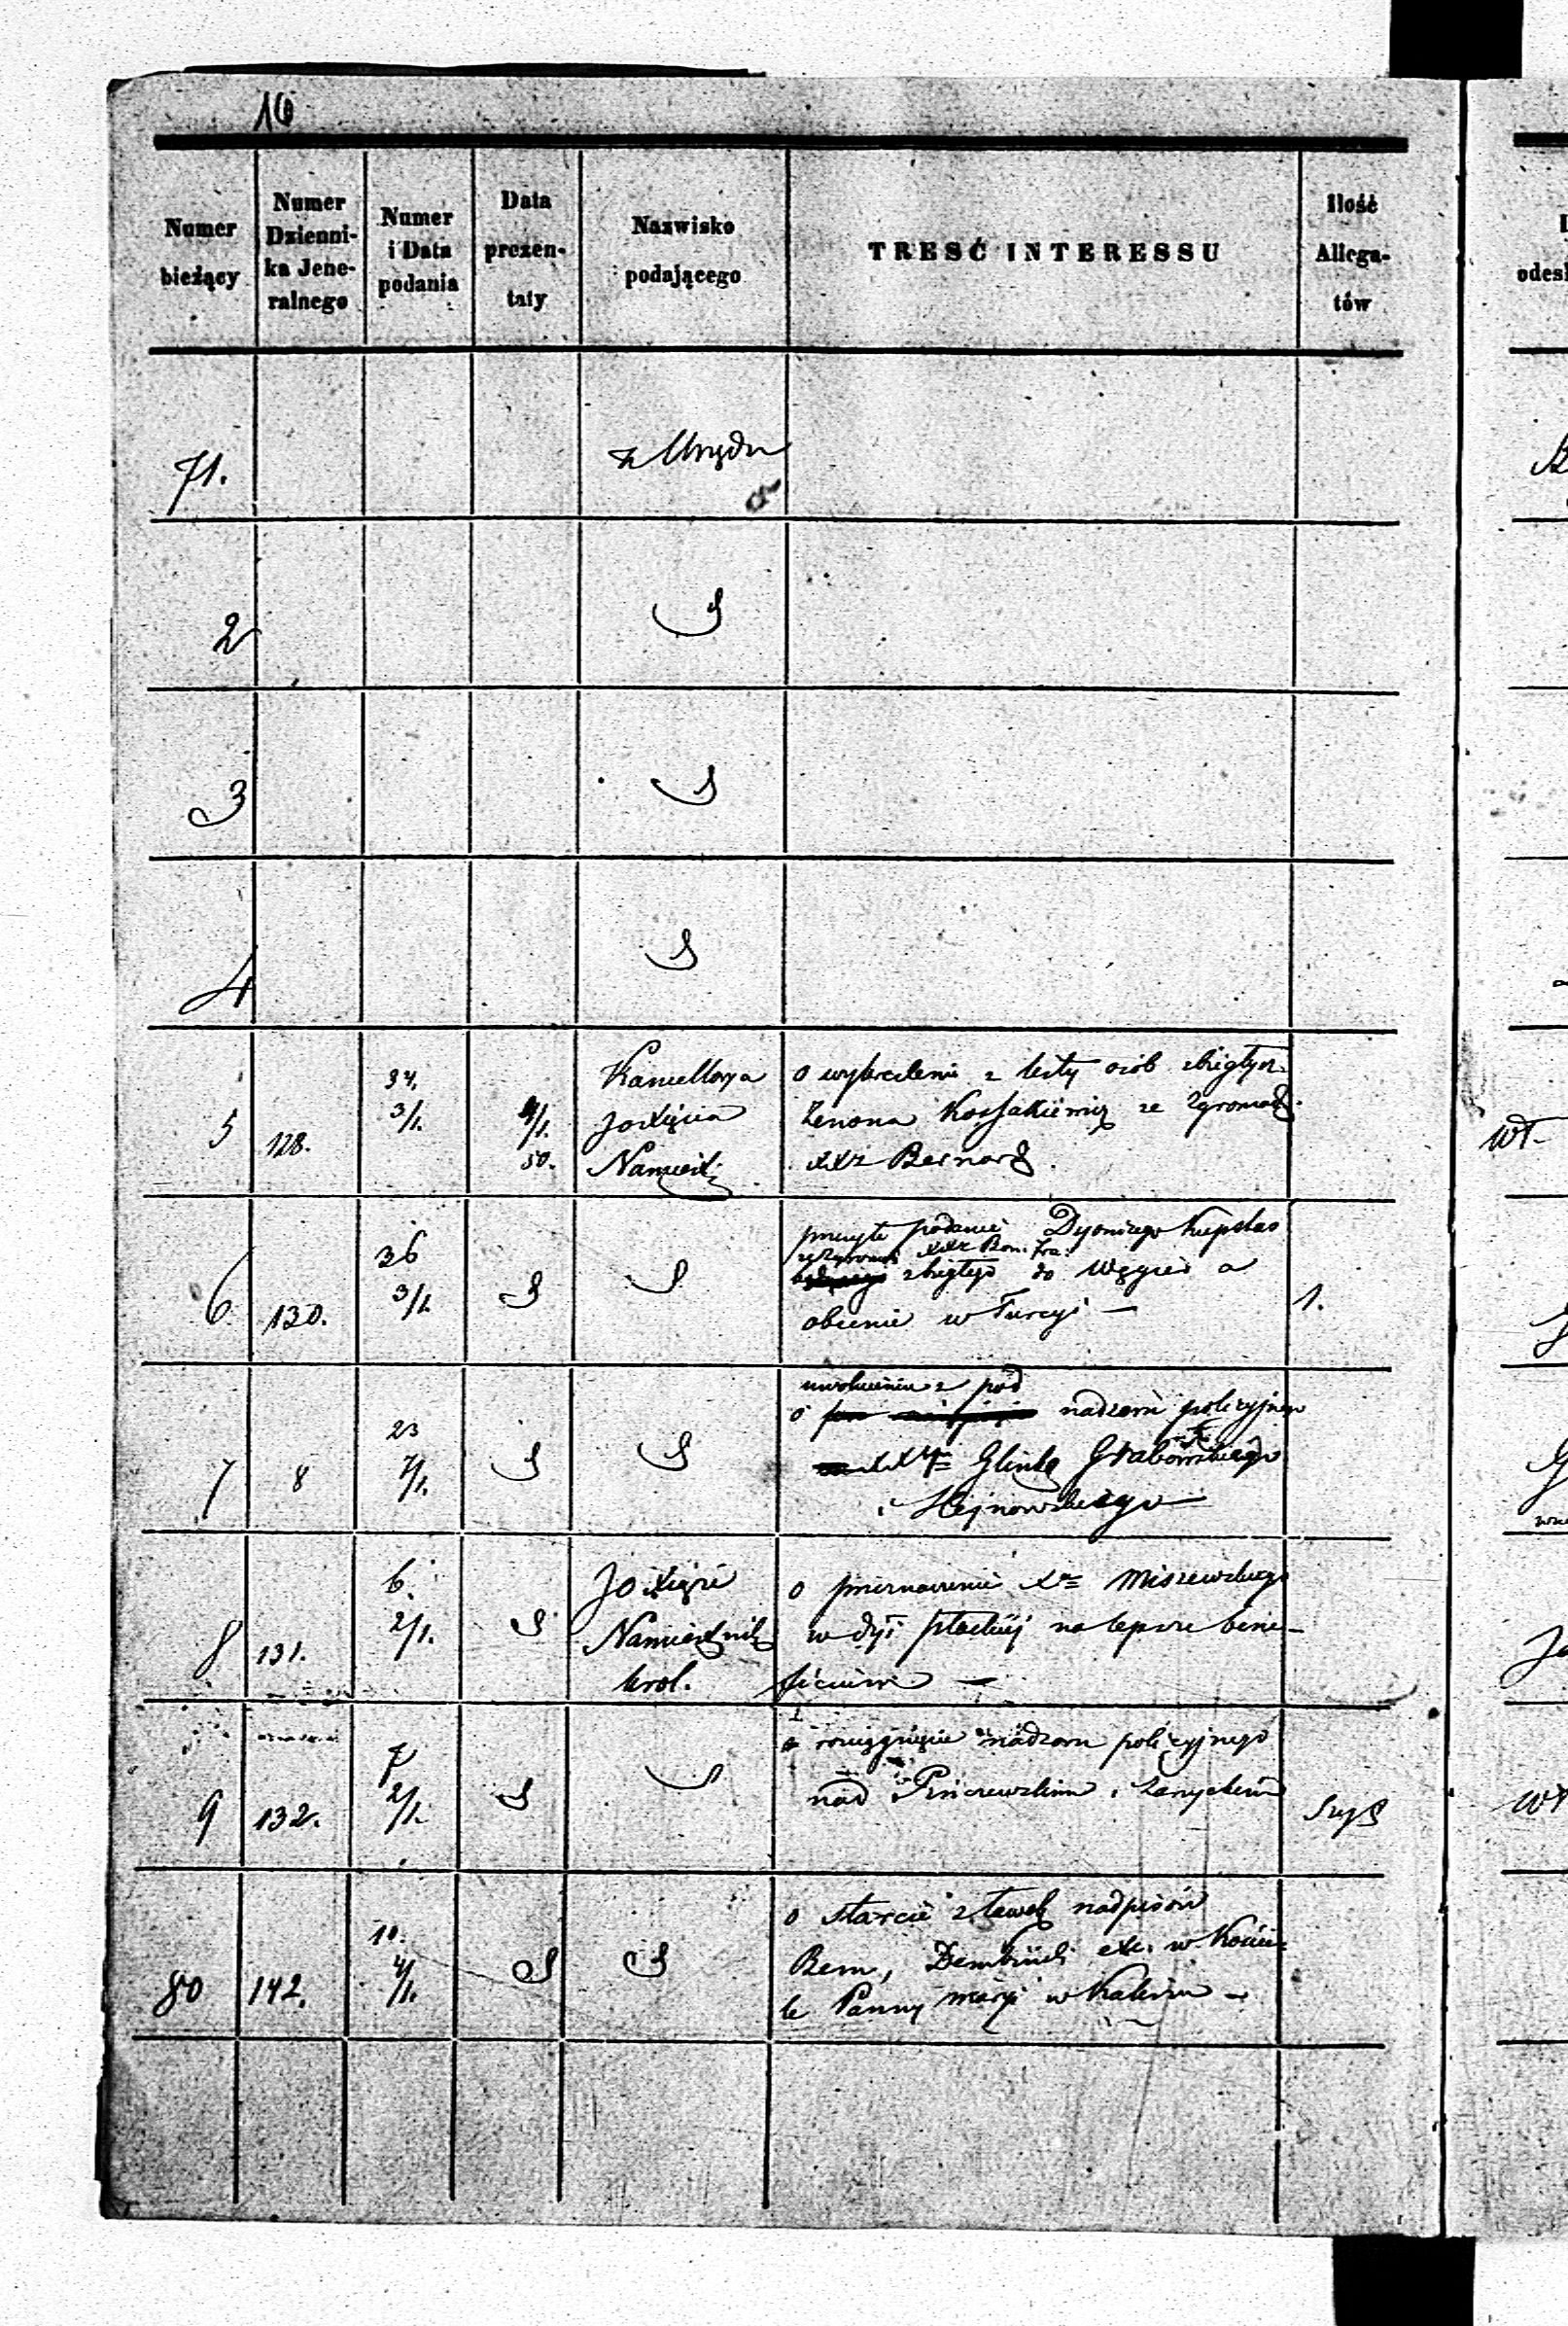 16
Numer bieżący
Numer Dzienni- ka Jene- ralnego
Numer i Data podania
Data prezen- taty
Nazwisko podającego
TRESĆ INTERESSU
Ilość Allega- tów
71.
z Urzędu
2
3
4
5
128.
34.
3/1.
4/1.
50.
Kancellarya
JoXięcia
Namiest:
o wykreślenie z listy osób zbiegłych
Zenona Kossakiewicz ze Zgromadz.
XXz Bernard.
6
130.
36
3/1.
przesyła podanie Dyonizego
ze Zgromad XXz Bon. Fra.
zbiegłego do Węgier a
obecnie w Turcyi —
1.
7
8
23
7/1.
uwolnienie z pod
o nadzoru policyjnego
Glinkę Grabowskiego
i Hejnowskiego —
8
131.
6.
2/1.
JO Xiąże
Namiestnik
Krol.
o przeznaczenie Xa Miszewskiego
w dyi płockiej na lepsze bene-
ficium —
9
132.
7
2/1.
rozciągnięcie nadzoru policyjnego
nad Pinczewskim i
80
142.
10.
4/1.
o starcie z ławek nadpisów
Bem, Dembiński etc. w Koście-
le Panny Maryi w Kaliszu —